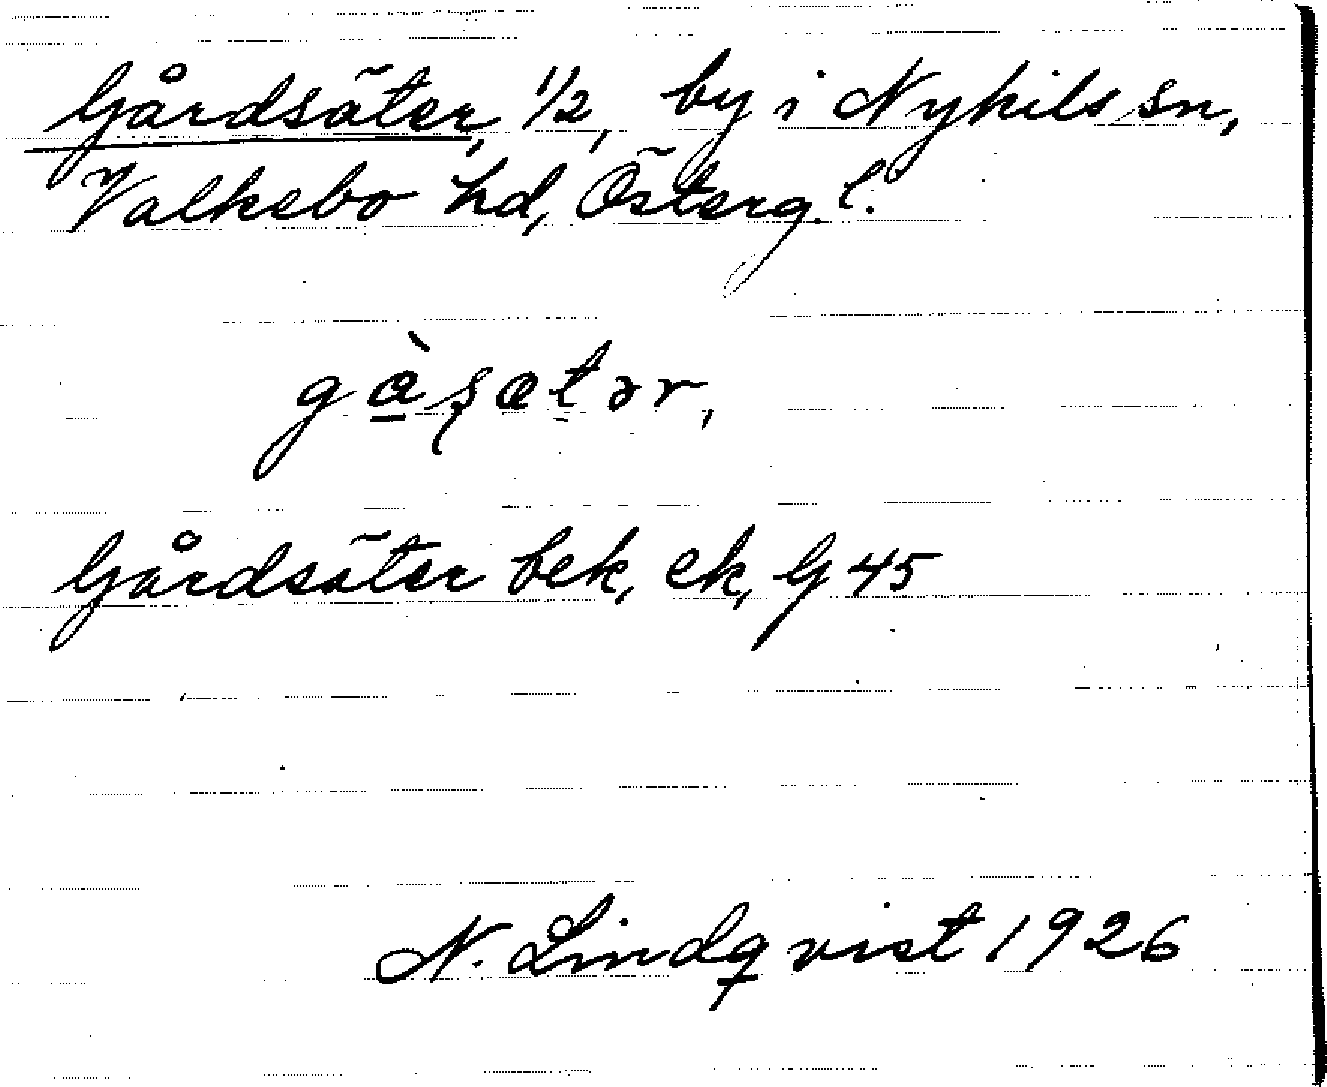 Gårdsäter, 1/2, by i Nykils sn,
Valkebo hd, Österg. l.
gàʂætər,
Gårdsäter bek, ek, G 45
N. Lindqvist 1926